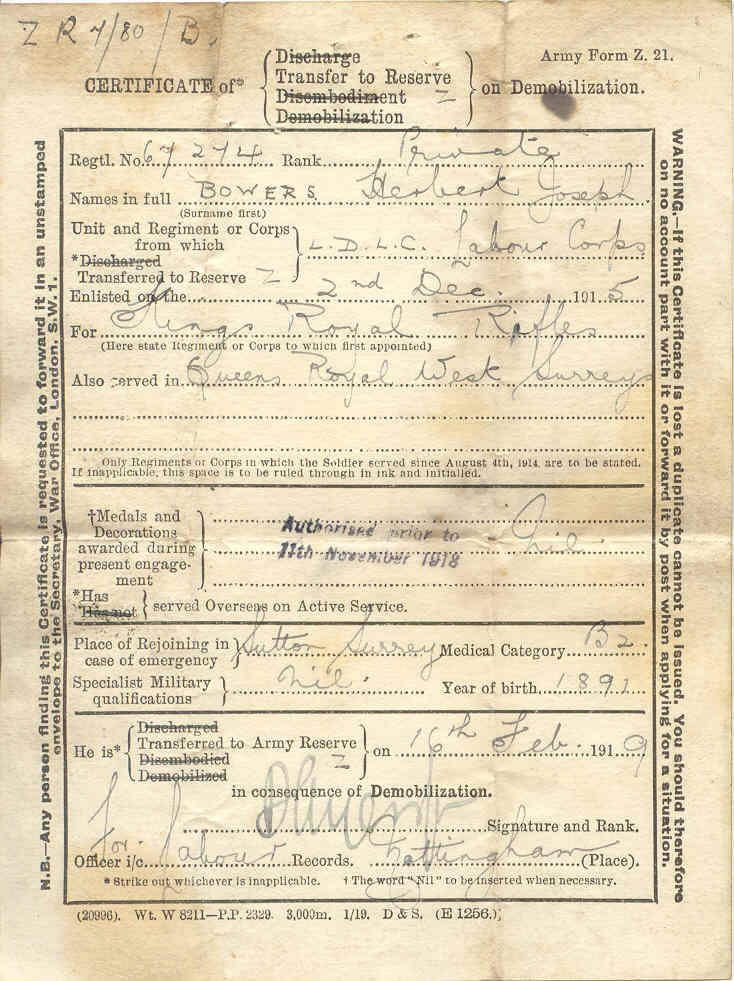 Z R 4/80/B.
Army Form Z. 21.
CERTIFICATE of* { Discharge
Transfer to Reserve Z
Disembodiment
Demobilization } on Demobilization.
Regtl. No. 67274 Rank Private
Names in full BOWERS Herbert Joseph
(Surname first)
Unit and Regiment or Corps
from which
*Discharged
Transferred to Reserve Z } L.D.L.C. Labour Corps
Enlisted on the 2nd Dec. 1915
For Kings Royal Rifles
(Here state Regiment or Corps to which first appointed)
Also served in Queens Royal West Surreys
Only Regiments or Corps in which the Soldier served since August 4th, 1914, are to be stated.
If inapplicable, this space is to be ruled through in ink and initialled.
†Medals and
Decorations
awarded during
present engage-
ment
Authorised prior to
11th November 1918
Nil.
*Has
Has not } served Overseas on Active Service.
Place of Rejoining in
case of emergency } Sutton Surrey Medical Category B2.
Specialist Military
qualifications } Nil. Year of birth 1891
He is* { Discharged
Transferred to Army Reserve Z
Disembodied
Demobilized } on 16th Feb. 1919
in consequence of Demobilization.
Signature and Rank.
For
Officer i/c Labour Records. Nottingham (Place).
* Strike out whichever is inapplicable. † The word "Nil" to be inserted when necessary.
(20996). Wt. W 8211—P.P. 2329. 3,000m. 1/19. D & S. (E 1256.)
N.B.—Any person finding this Certificate is requested to forward it in an unstamped
envelope to the Secretary, War Office, London, S.W. 1.
WARNING.—If this Certificate is lost a duplicate cannot be issued. You should therefore
on no account part with it or forward it by post when applying for a situation.